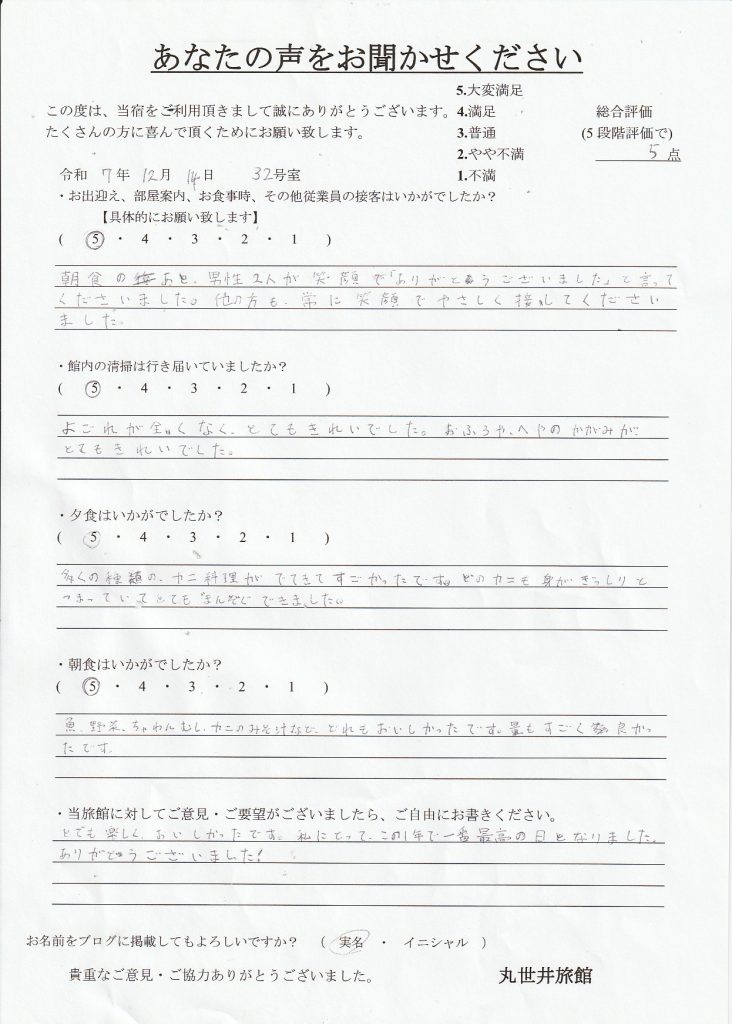 あなたの声をお聞かせください
5.大変満足
この度は、当宿をご利用頂きまして誠にありがとうございます。 4.満足 総合評価
たくさんの方に喜んで頂くためにお願い致します。 3.普通 (5段階評価で)
2.やや不満 5点
令和 7年 12月 14日 32号室 1.不満
・お出迎え、部屋案内、お食事時、その他従業員の接客はいかがでしたか?
【具体的にお願い致します】
( 5 ・ 4 ・ 3 ・ 2 ・ 1 )
朝食のあと、男性2人が笑顔で「ありがとうございました」と言って
くださいました。他の方も、常に笑顔でやさしく接してください
ました。
・館内の清掃は行き届いていましたか?
( 5 ・ 4 ・ 3 ・ 2 ・ 1 )
よごれが全くなく、とてもきれいでした。おふろや、へやのかがみが、
とてもきれいでした。
・夕食はいかがでしたか?
( 5 ・ 4 ・ 3 ・ 2 ・ 1 )
多くの種類の、カニ料理がでてきてすごかったです。どのカニも身がぎっしりと
つまっていてとてもまんぞくできました。
・朝食はいかがでしたか?
( 5 ・ 4 ・ 3 ・ 2 ・ 1 )
魚、野菜、ちゃわんむし、カニのみそ汁など、どれもおいしかったです。量もすごく良かっ
たです。
・当旅館に対してご意見・ご要望がございましたら、ご自由にお書きください。
とても楽しく、おいしかったです。私にとって、この1年で一番最高の日となりました。
ありがとうございました!
お名前をブログに掲載してもよろしいですか? ( 実名 ・ イニシャル )
貴重なご意見・ご協力ありがとうございました。 丸世井旅館